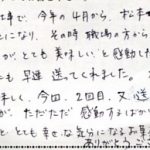 仕事で、今年の4月から、松本
になり、その時職場の方から
が、とても美味しいと感動した
にも早速送ってくれました。
味しく、今回、2回目、又、送
が、ただただ感動するばか
と、とても幸せな気分になるお菓
ありがとうござ